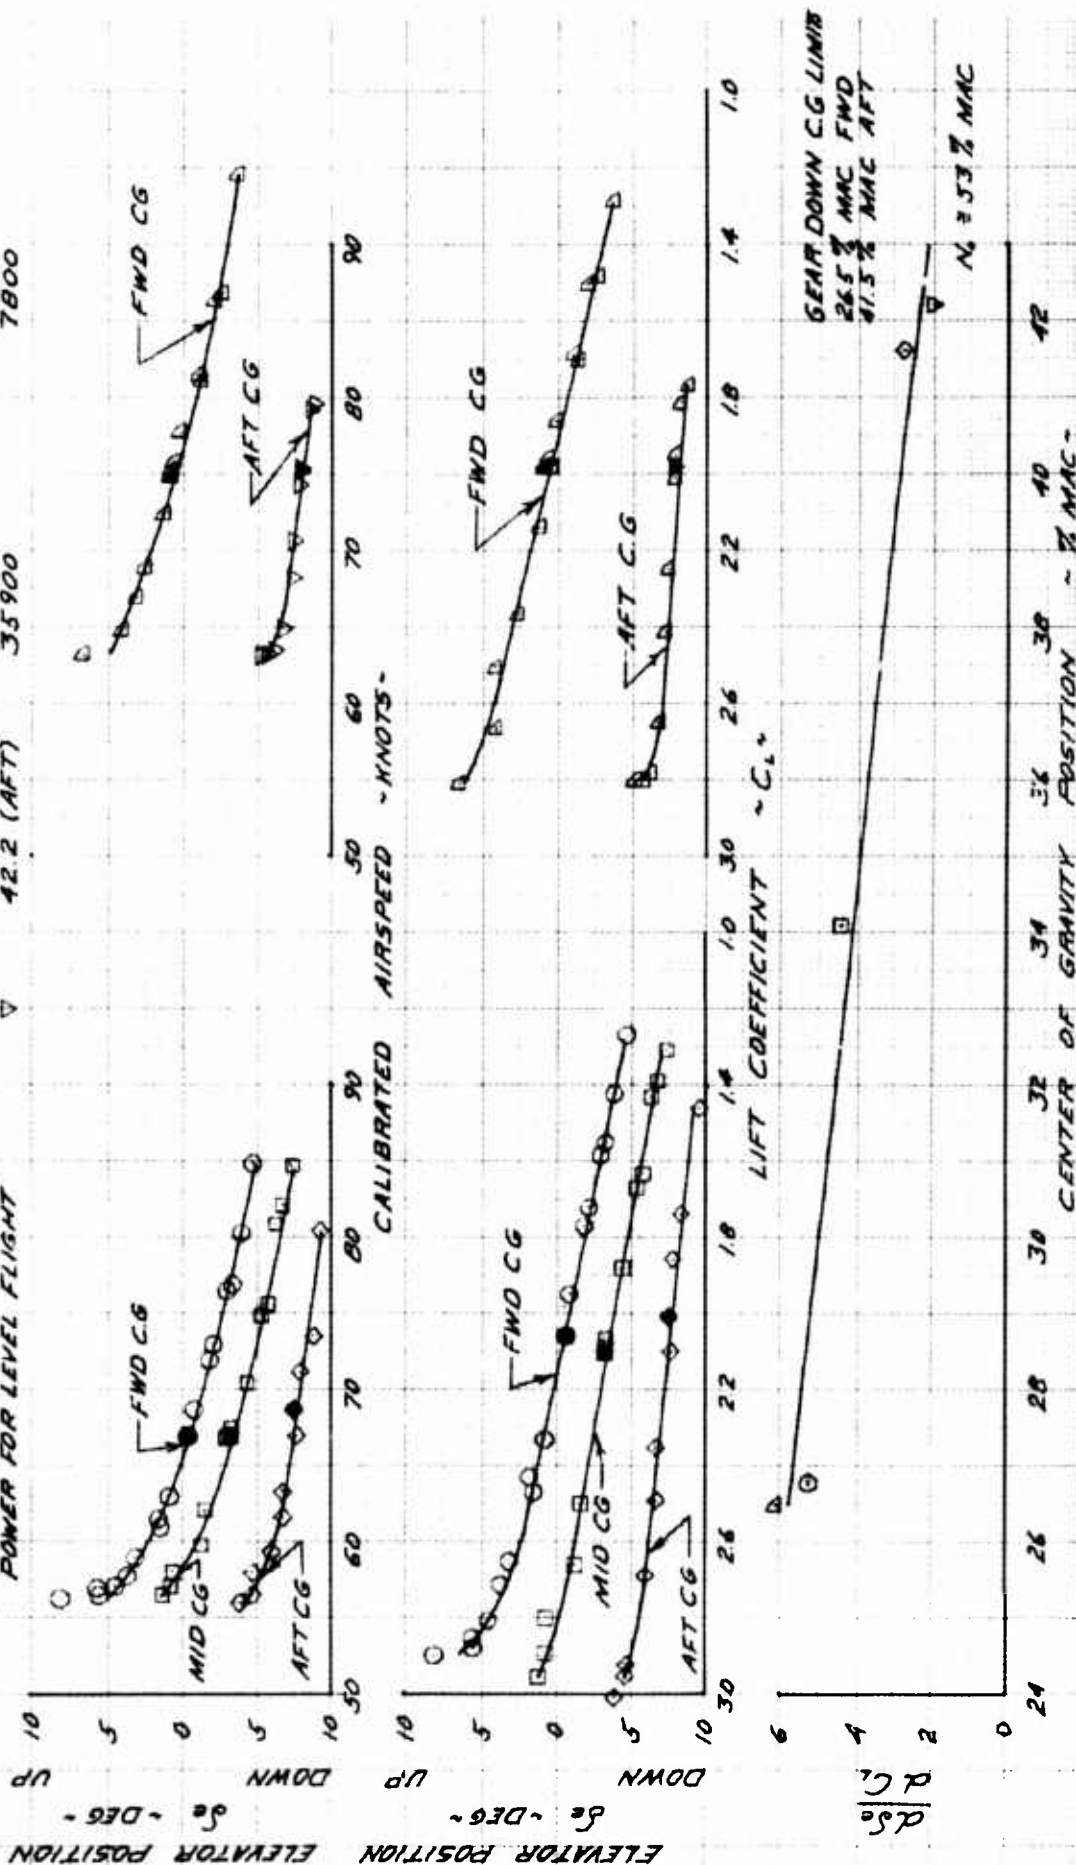 ▽ 42.2 (AFT) 35900 7800
POWER FOR LEVEL FLIGHT
ELEVATOR POSITION
δe ~ DEG ~
UP DOWN
10 5 0 5 10
FWD CG
MID CG
AFT CG
50 60 70 80 90
FWD CG
AFT CG
50 60 70 80 90
CALIBRATED AIRSPEED ~KNOTS~
ELEVATOR POSITION
δe ~ DEG ~
UP DOWN
10 5 0 5 10
FWD CG
MID CG
AFT CG
3.0 2.6 2.2 1.8 1.4 1.0
FWD CG
AFT C.G
3.0 2.6 2.2 1.8 1.4 1.0
LIFT COEFFICIENT ~ CL ~
dδe
dCL
6 4 2 0
GEAR DOWN CG LIMITS
26.5 % MAC FWD
41.5 % MAC AFT
N. = 53 % MAC
24 26 28 30 32 34 36 38 40 42
CENTER OF GRAVITY POSITION ~ % MAC ~